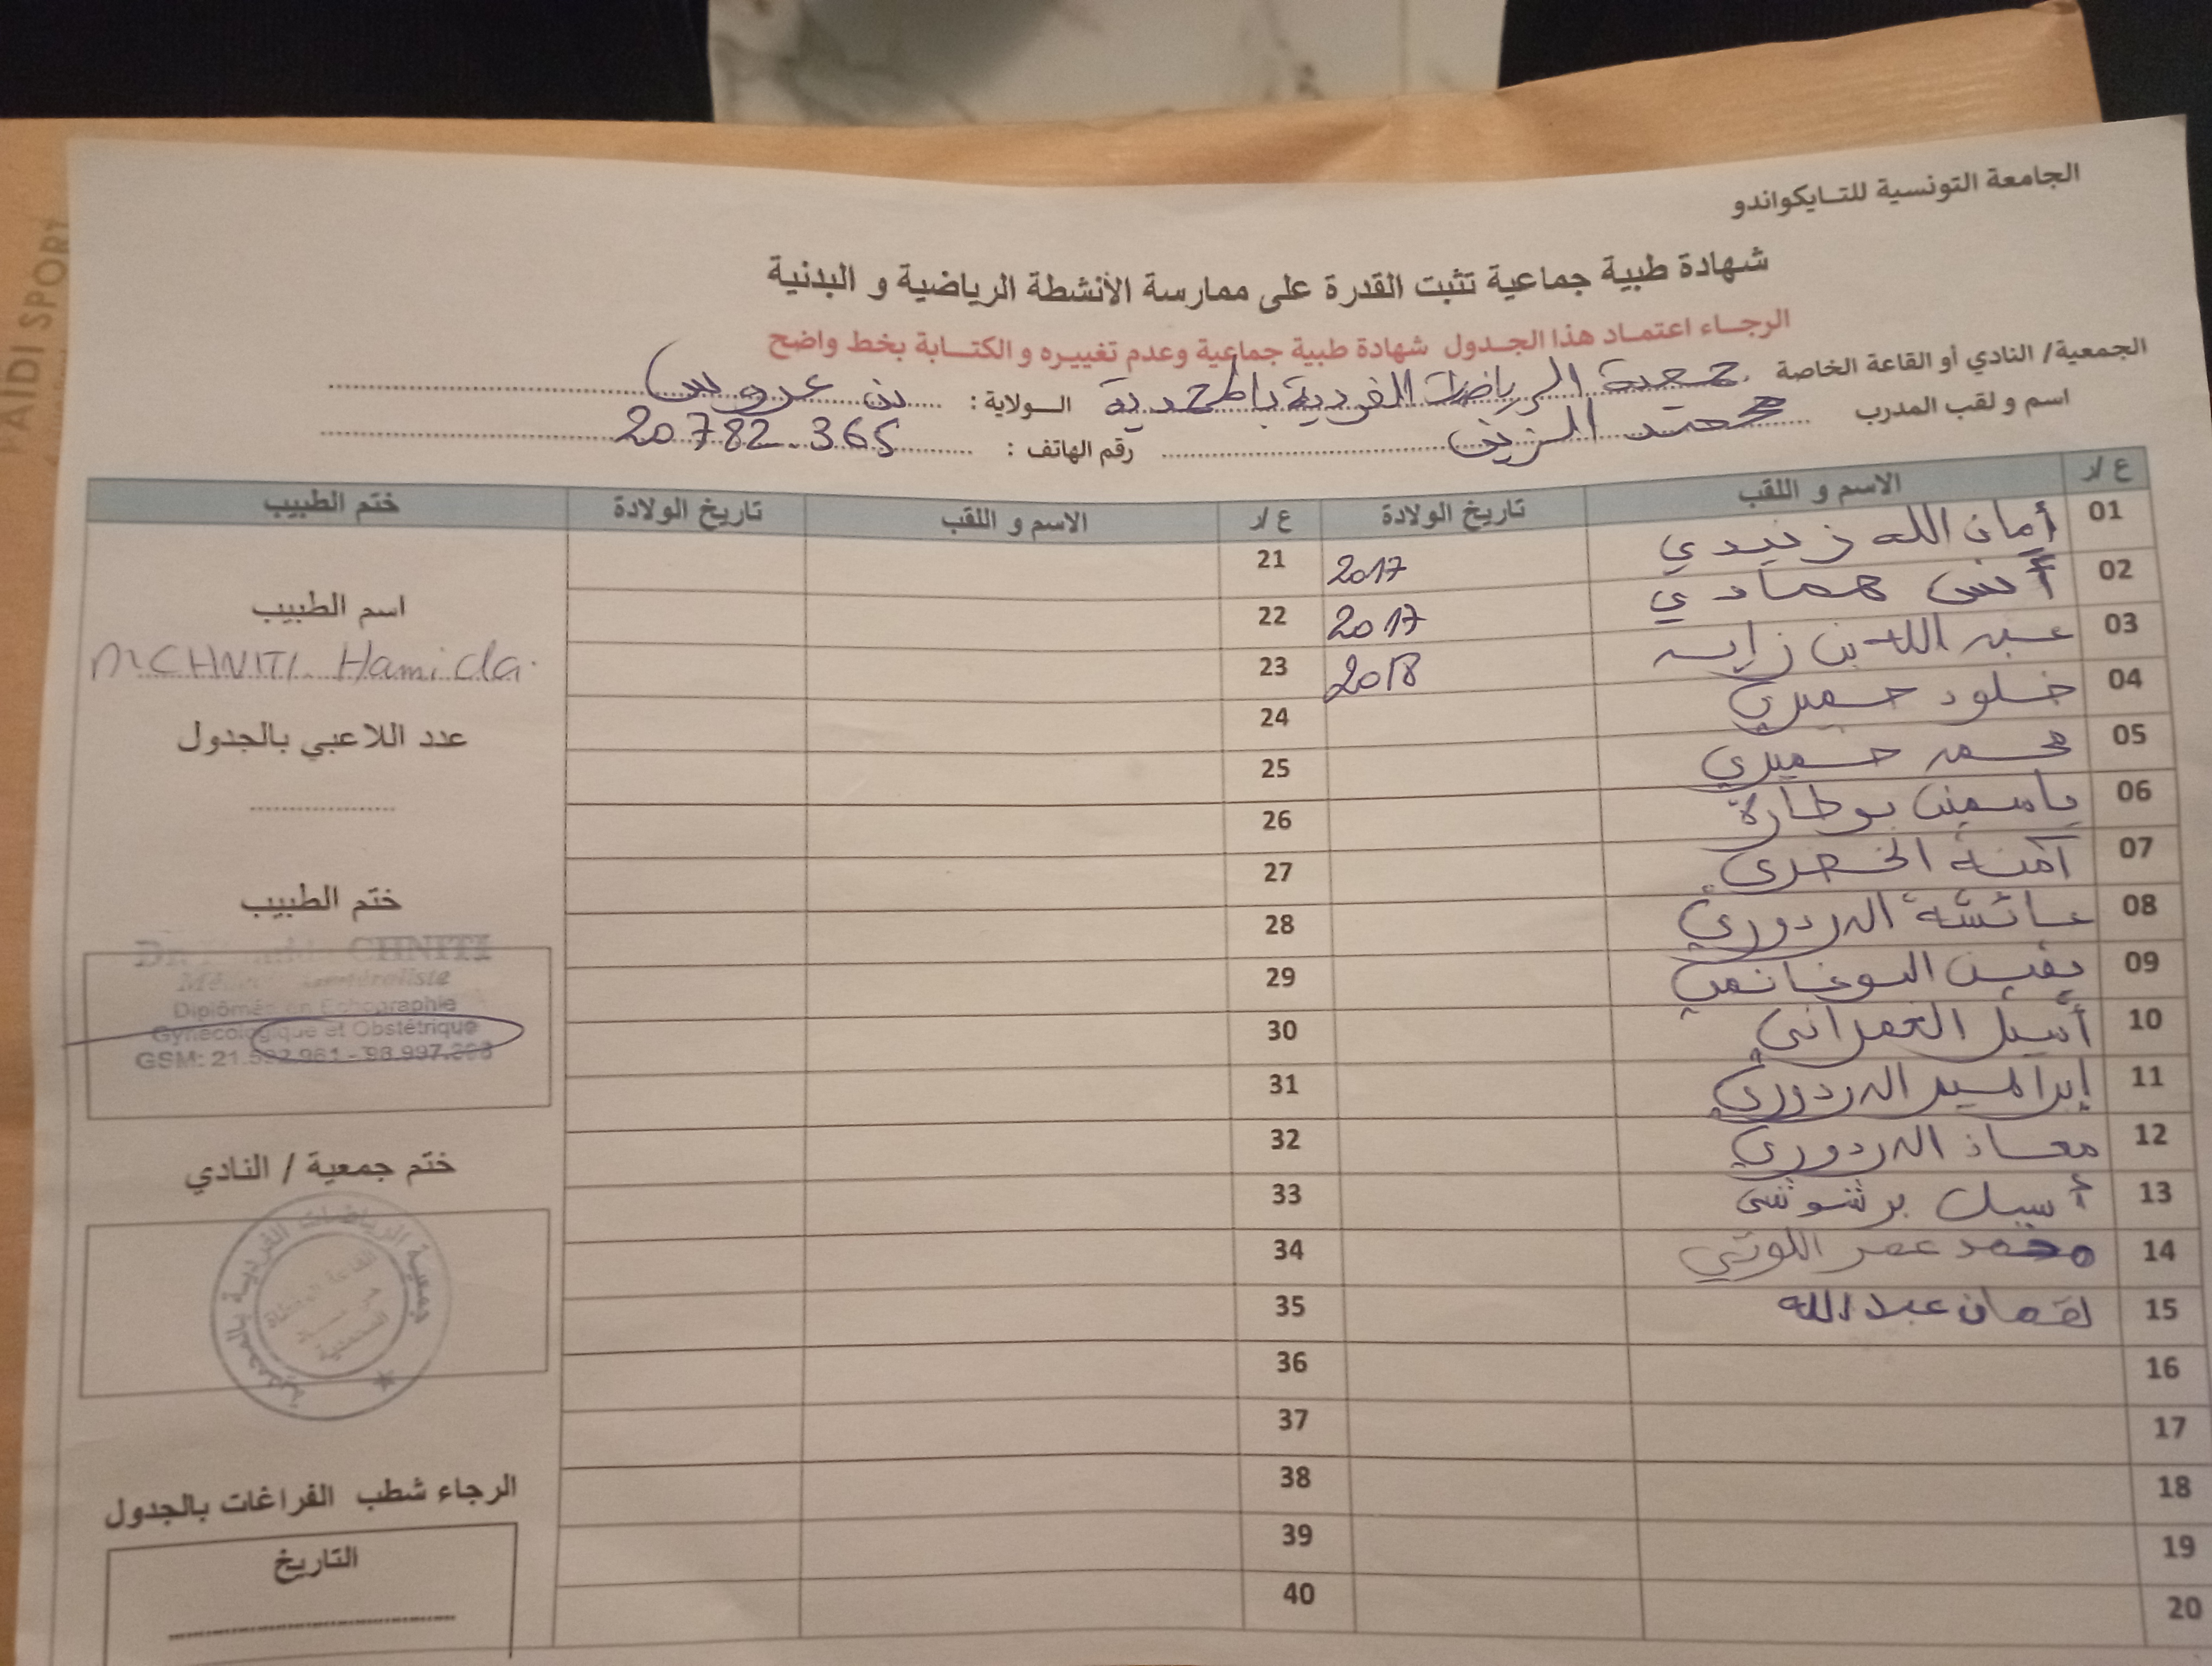 الجامعة التونسية للتـايكواندو
شهادة طبية جماعية تثبت القدرة على ممارسة الأنشطة الرياضية و البدنية
الرجـاء اعتمـاد هذا الجـدول شهادة طبية جماعية وعدم تغييـره و الكتـابة بخط واضح
الجمعية/ النادي أو القاعة الخاصة جمعية الرياضات الفردية بالمحمدية الـولاية : بن عروس
اسم و لقب المدرب محمد الزين رقم الهاتف : 20782.365
ع /ر الاسم و اللقب تاريخ الولادة ع /ر الاسم و اللقب تاريخ الولادة ختم الطبيب
01 أمان الله زنيدي 2017 21
02 أنس حمادي 2017 22
03 عبد الله بن زايد 2018 23
04 خلود حميري 24
05 محمد حميري 25
06 ياسمين بوطارة 26
07 آمنة 27
08 عائشة الدردوري 28
09 يقين البوغانمي 29
10 أسيل العمراني 30
11 إبراهيم الدردوري 31
12 معاذ الدردوري 32
13 أسيل برشوشي 33
14 محمد عمر اللوتي 34
15 لقمان عبد الله 35
16 36
17 37
18 38
19 39
20 40
اسم الطبيب
MCHNITI. Hamida.
عدد اللاعبي بالجدول
ختم الطبيب
Dr. CHNITI
Diplômée en Echographie
Gynécologique et Obstétrique
GSM: 21
ختم جمعية / النادي
جمعية الرياضات الفردية بالمحمدية
الرجاء شطب الفراغات بالجدول
التاريخ
PAIDI SPORT